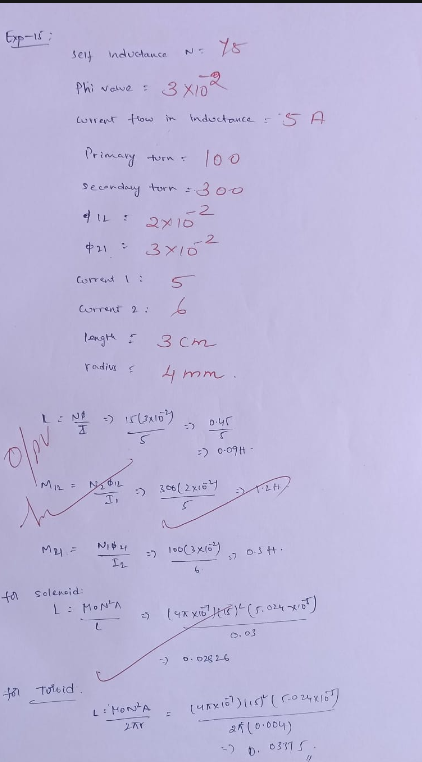 Exp-15:
Self Inductance N = 15
Phi value = 3 × 10^-2
current flow in Inductance = 5 A
Primary turn = 100
secondary turn = 300
ϕ12 = 2×10^-2
ϕ21 = 3×10^-2
Current 1 : 5
Current 2 : 6
length = 3 cm
radius = 4 mm.
L = Nϕ/I => 15(3×10^-2)/5 => 0.45/5
=> 0.09H.
O/P✓
M12 = N2ϕ12/I1 => 300(2×10^-2)/5 => 1.2H
M21 = N1ϕ21/I2 => 100(3×10^-2)/6 => 0.5H.
for solenoid:
L = MON²A/L => (4π×10^-7)(15)²(5.024×10^-5)/0.03
=> 0.02826
for Toloid.
L = MON²A/2πr = (4π×10^-7)(15)²(5.024×10^-5)/2π(0.004)
=> 0.03375.